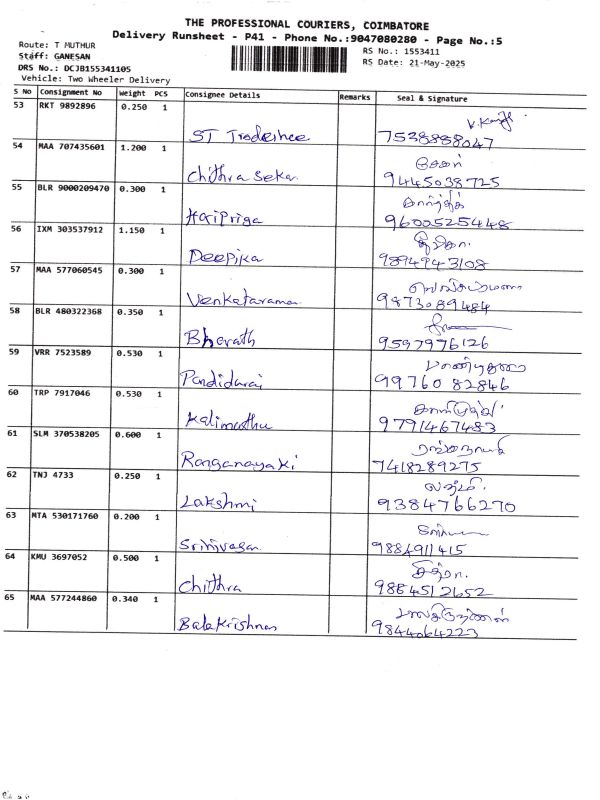 THE PROFESSIONAL COURIERS, COIMBATORE
Delivery Runsheet - P41 - Phone No.:9047080280 - Page No.:5
Route: T MUTHUR
Staff: GANESAN
DRS No.: DCJB155341105
Vehicle: Two Wheeler Delivery
RS No.: 1553411
RS Date: 21-May-2025
S No Consignment No Weight PCS Consignee Details Remarks Seal & Signature
53 RKT 9892896 0.250 1
ST Tradeihee 7538888047
54 MAA 707435601 1.200 1 சேகர்
Chithra Sekar 9445038725
55 BLR 9000209470 0.300 1 கார்த்திக்
Haripriya 9600525448
56 IXM 303537912 1.150 1
Deepika 9894943108
57 MAA 577060545 0.300 1
Venkataraman 9873089484
58 BLR 480322368 0.350 1
Bharath 9597976126
59 VRR 7523589 0.530 1
Pandidurai 99760 82846
60 TRP 7917046 0.530 1
Kalimuthu 9791467483
61 SLM 370538205 0.600 1
Ranganayaki 7418289275
62 TNJ 4733 0.250 1
Lakshmi 9384766270
63 MTA 530171760 0.200 1
Srinivasan 9884911415
64 KMU 3697052 0.500 1 சித்ரா
Chithra 9884512652
65 MAA 577244860 0.340 1
Balakrishnan 9844064223